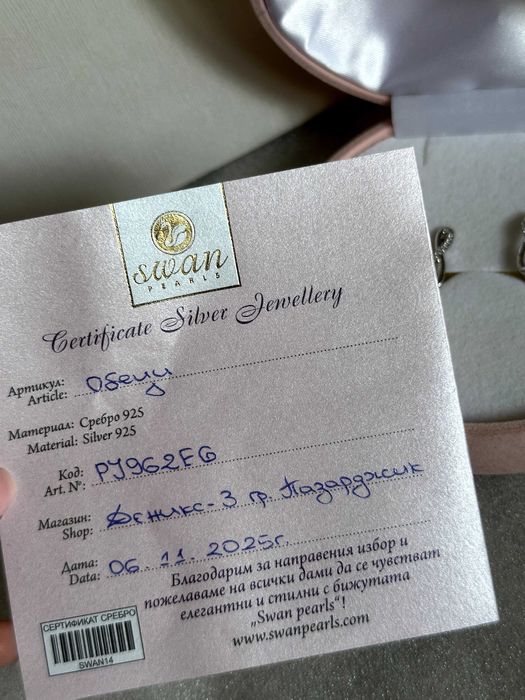 swan
PEARLS
Certificate Silver Jewellery
Артикул: Обеци
Article:
Материал: Сребро 925
Material: Silver 925
Код: PJ962EG
Art. №:
Магазин: Феникс-3 гр. Пазарджик
Shop:
Дата: 06.11.2025г.
Data:
Благодарим за направения избор и
пожелаваме на всички дами да се чувстват
елегантни и стилни с бижутата
„Swan pearls“!
www.swanpearls.com
СЕРТИФИКАТ СРЕБРО
SWAN14